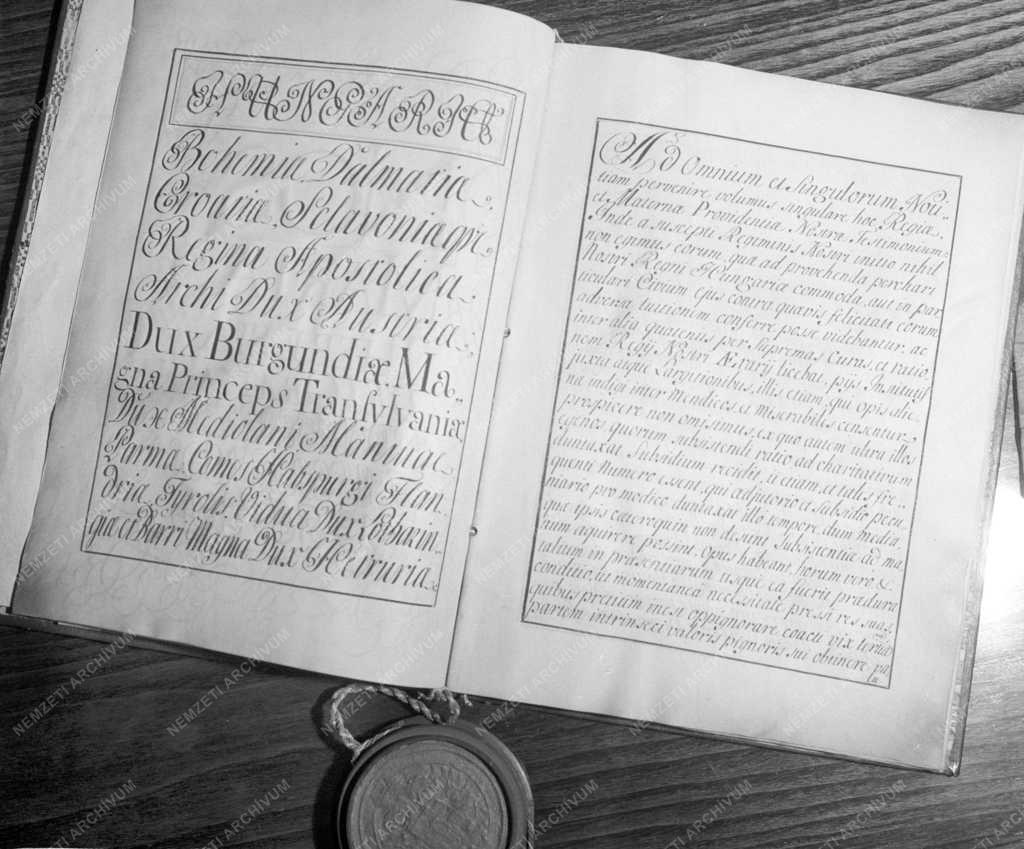 HUNGARIÆ
Bohemiæ Dalmatiæ,
Croatiæ, Sclavoniæqꝫ
Regina Apostolica,
Archi Dux Austriæ;
Dux Burgundiæ, Ma„
gna Princeps Transylvaniæ
Dux Mediolani Mantuæ,
Parmæ, Comes Habspurgi Flan„
driæ, Tyrolis, Vidua Dux Lotharin„
giæ et Barri Magna Dux Hetruriæ
Ad Omnium et Singulorum Noti„
tiam pervenire volumus singulare hoc Regiæ,
et Maternæ Providentiæ Nostræ Testimonium:
Inde a suscepti Regiminis Nostri initio nihil
non egimus eorum, quæ ad provehenda perchari
Nostri Regni Hungariæ commoda, aut in par
ticulari Civium ejus contra quævis felicitati eorum
adversa tuitionem conferre posse videbantur, ac
inter alia quatenus per supremas Curas, et ratio
nem Regij Nostri Ærarij licebat, pijs Institutis
juxta atque Largitionibus, illis etiam, qui opis alie„
næ indigi inter Mendicos, et miserabiles censentur,
prospicere non omisimus, ex quo autem ultra illos
egenos quorum subsistendi ratio ad charitativum
duntaxat subsidium recidit, ij etiam, et tales fre„
quenti Numero essent, qui adjutorio et subsidio pecu
niario pro modico duntaxat illo tempore, dum media,
quæ ipsis cæteroquin non desunt subsistentiæ, ac ma
tum aquirere possint, opus habeant, horum vero &
talium in præsentiarum usque ea fuerit prædura
conditio, ut momentanea necessitate pressi res suas,
quibus pretium inest oppignorare coacti vix tertiam
partem intrinseci valoris pignoris sui obtinere, pa
NEMZETI ARCHÍVUM